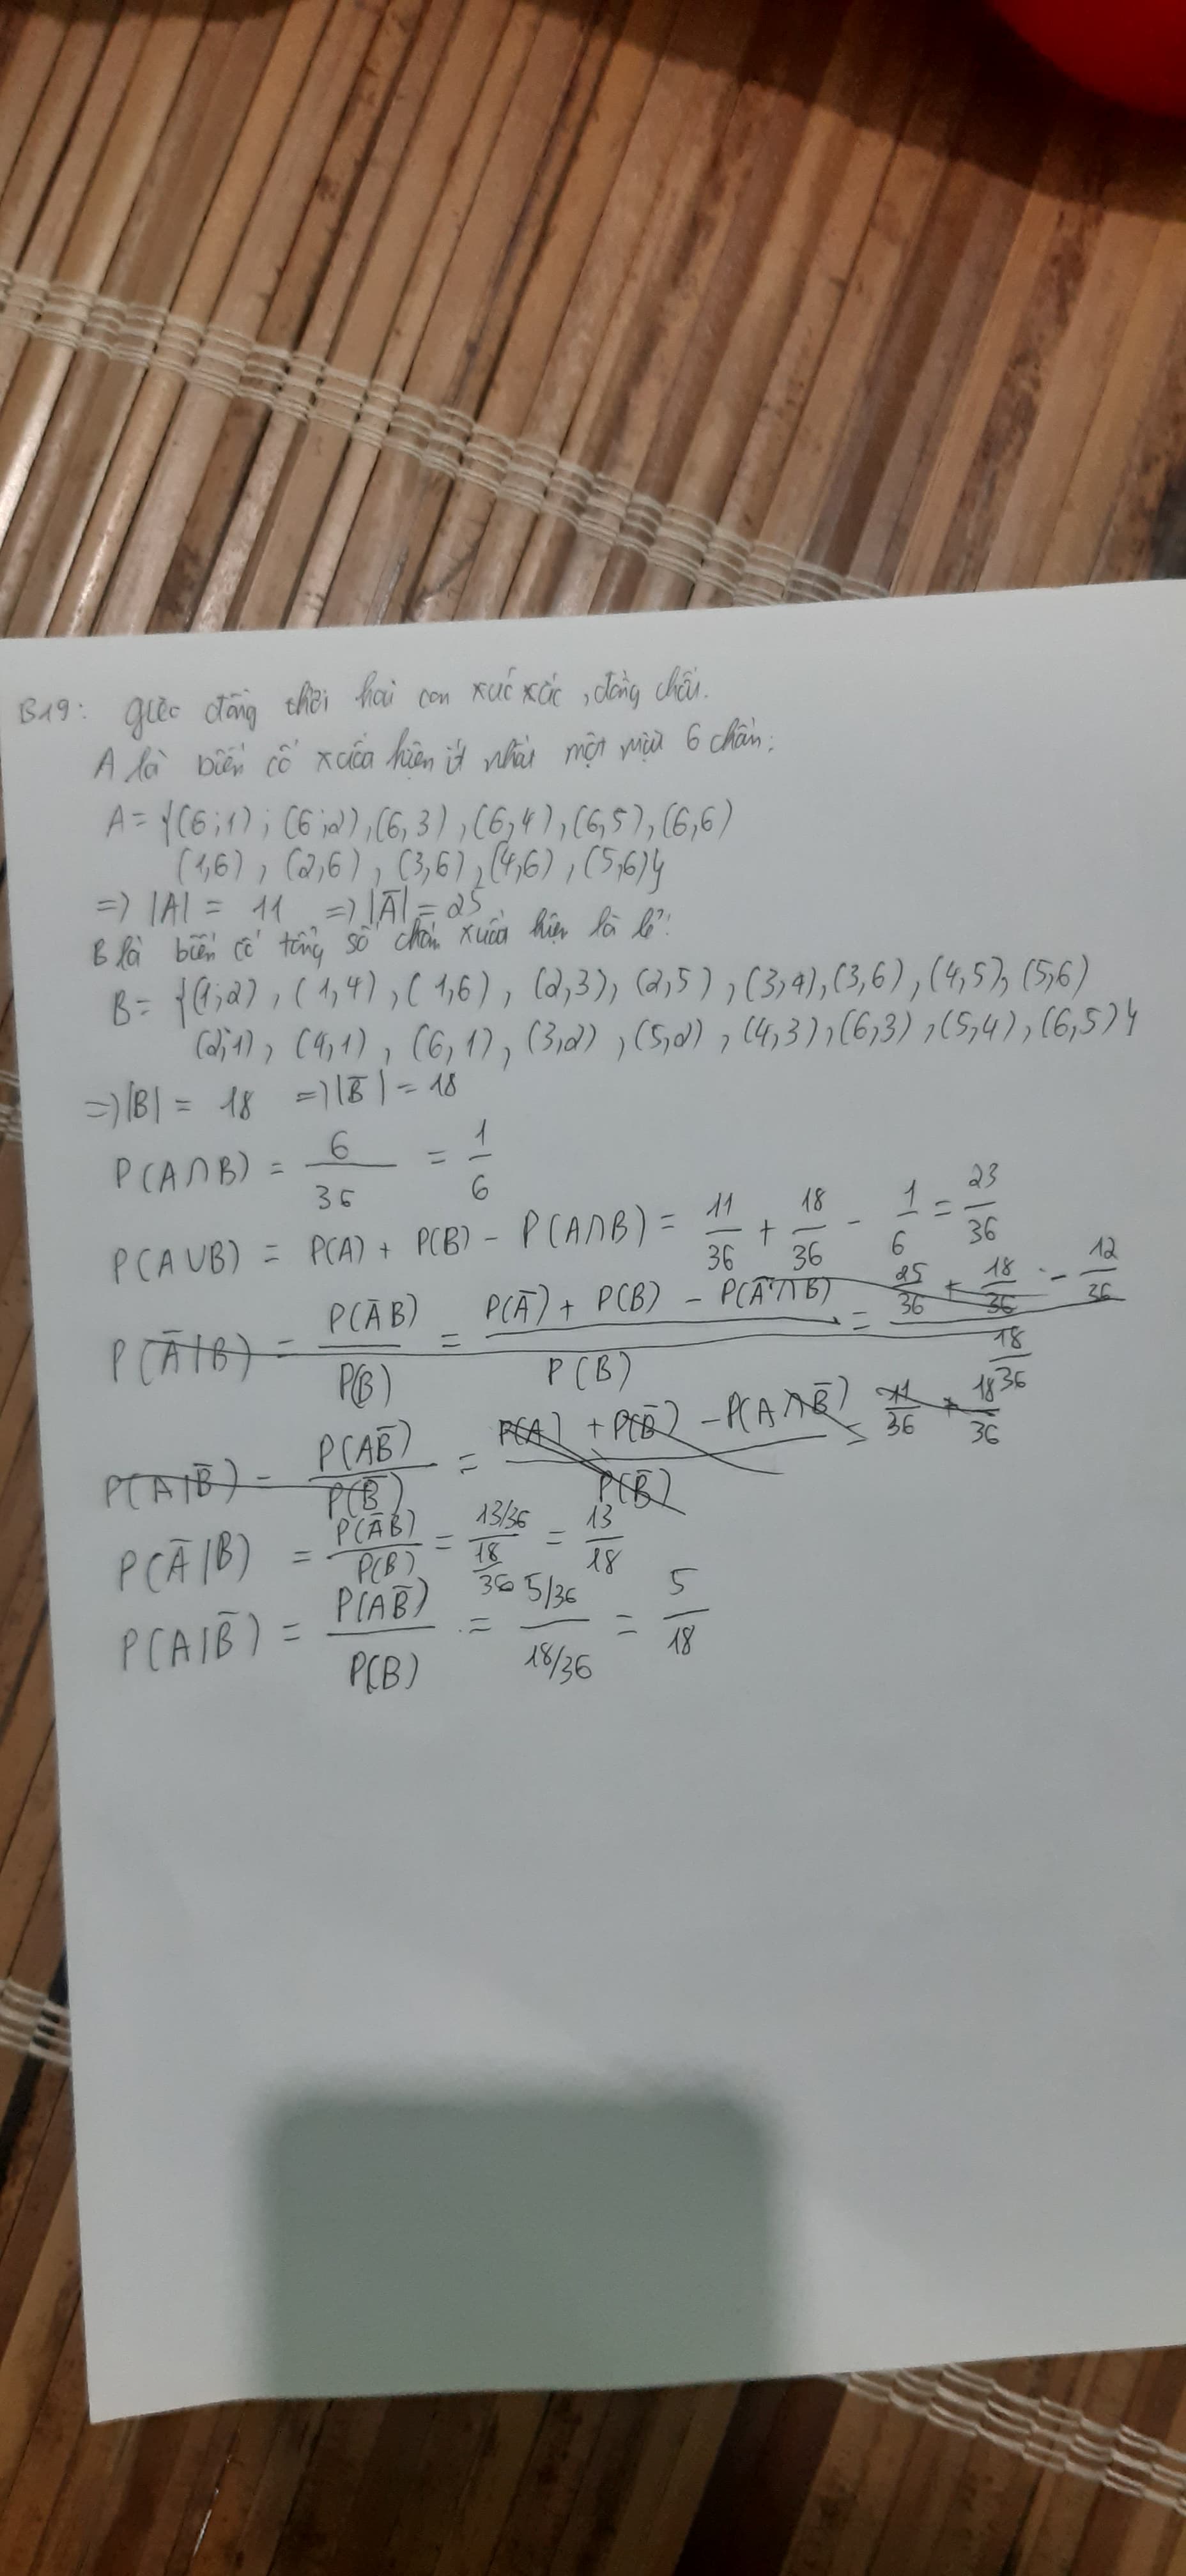 B19: gieo đồng thời hai con xúc xắc, đồng chất.
A là biến cố xuất hiện ít nhất một mặt 6 chấm:
A = {(6;1); (6;2), (6,3), (6,4), (6,5), (6,6)
(1,6), (2,6), (3,6), (4,6), (5,6)}
=> |A| = 11 => |Ā| = 25
B là biến cố tổng số chấm xuất hiện là lẻ:
B = {(1;2), (1,4), (1,6), (2,3), (2,5), (3,4), (3,6), (4,5), (5,6)
(2;1), (4,1), (6,1), (3,2), (5,2), (4,3), (6,3), (5,4), (6,5)}
=> |B| = 18 => |B̄| = 18
P(A∩B) = 6/36 = 1/6
P(A∪B) = P(A) + P(B) - P(A∩B) = 11/36 + 18/36 - 1/6 = 23/36
P(Ā|B) = P(ĀB)/P(B) = P(Ā) + P(B) - P(Ā∩B)/P(B) = 25/36 + 18/36 - 12/36 / 18/36
P(A|B̄) = P(AB̄)/P(B̄) = P(A) + P(B̄) - P(A∩B̄)/P(B̄) = 11/36 + 18/36
P(Ā|B) = P(ĀB)/P(B) = 13/36 / 18/36 = 13/18
P(A|B̄) = P(AB̄)/P(B) = 5/36 / 18/36 = 5/18